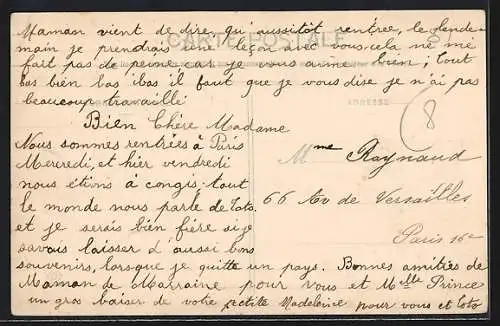 Maman vient de dire qu'aussitôt rentrée, le lende-
main je prendrais une leçon avec vous, cela ne me
fait pas de peine car je vous aime bien ; tout
bas bien bas ibas il faut que je vous dise je n'ai pas
beaucoup travaillé
CARTE POSTALE
ADRESSE
8
Bien Chère Madame
Nous sommes rentrées à Paris
Mercredi, et hier vendredi
nous étions à congis, tout
le monde nous parle de Toto,
et je serais bien fière si je
savais laisser d'aussi bons
souvenirs, lorsque je quitte un pays. Bonnes amitiés de
Maman de Marraine pour vous et Melle Prince
un gros baiser de votre petite Madeleine pour vous et Toto
Mme Raynaud
66 Av de Versailles
Paris 16e